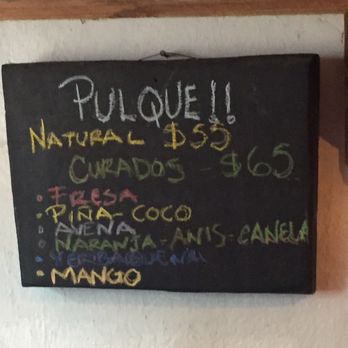 PULQUE!!
NATURAL $55
CURADOS - $65
• FRESA
• PIÑA-COCO
• AVENA
• NARANJA-ANIS-CANELA
• YERBABUENA
• MANGO